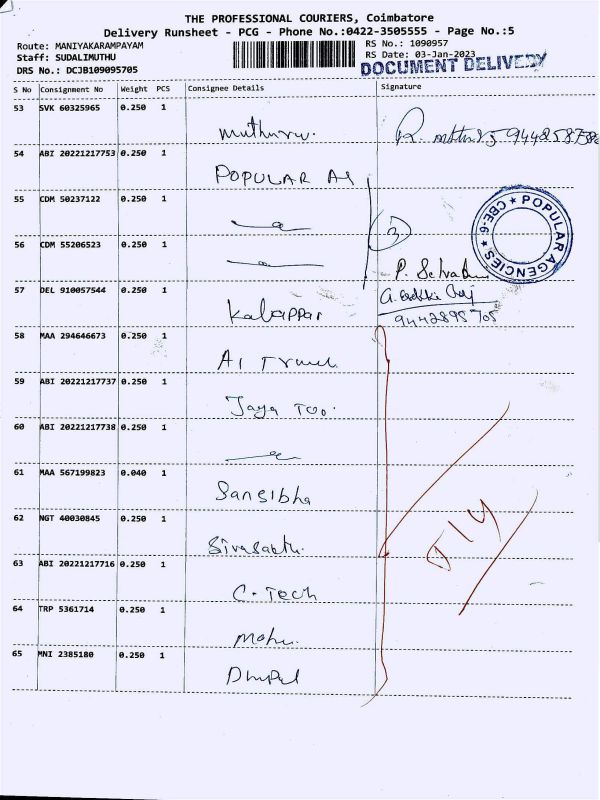 THE PROFESSIONAL COURIERS, Coimbatore
Delivery Runsheet - PCG - Phone No.:0422-3505555 - Page No.:5
Route: MANIYAKARAMPAYAM RS No.: 1090957
Staff: SUDALIMUTHU RS Date: 03-Jan-2023
DRS No.: DCJB109095705 DOCUMENT DELIVERY
S No Consignment No Weight PCS Consignee Details Signature
53 SVK 60325965 0.250 1
54 ABI 20221217753 0.250 1 POPULAR
55 CDM 50237122 0.250 1
3
POPULAR AGENCIES ★ CBE-6 ★
56 CDM 55206523 0.250 1
57 DEL 910057544 0.250 1 Kalappar
9442895705
58 MAA 294646673 0.250 1
59 ABI 20221217737 0.250 1 Jaya
60 ABI 20221217738 0.250 1
61 MAA 567199823 0.040 1 Sansibha
62 NGT 40030845 0.250 1
63 ABI 20221217716 0.250 1 C. Tech
64 TRP 5361714 0.250 1
65 MNI 2385180 0.250 1